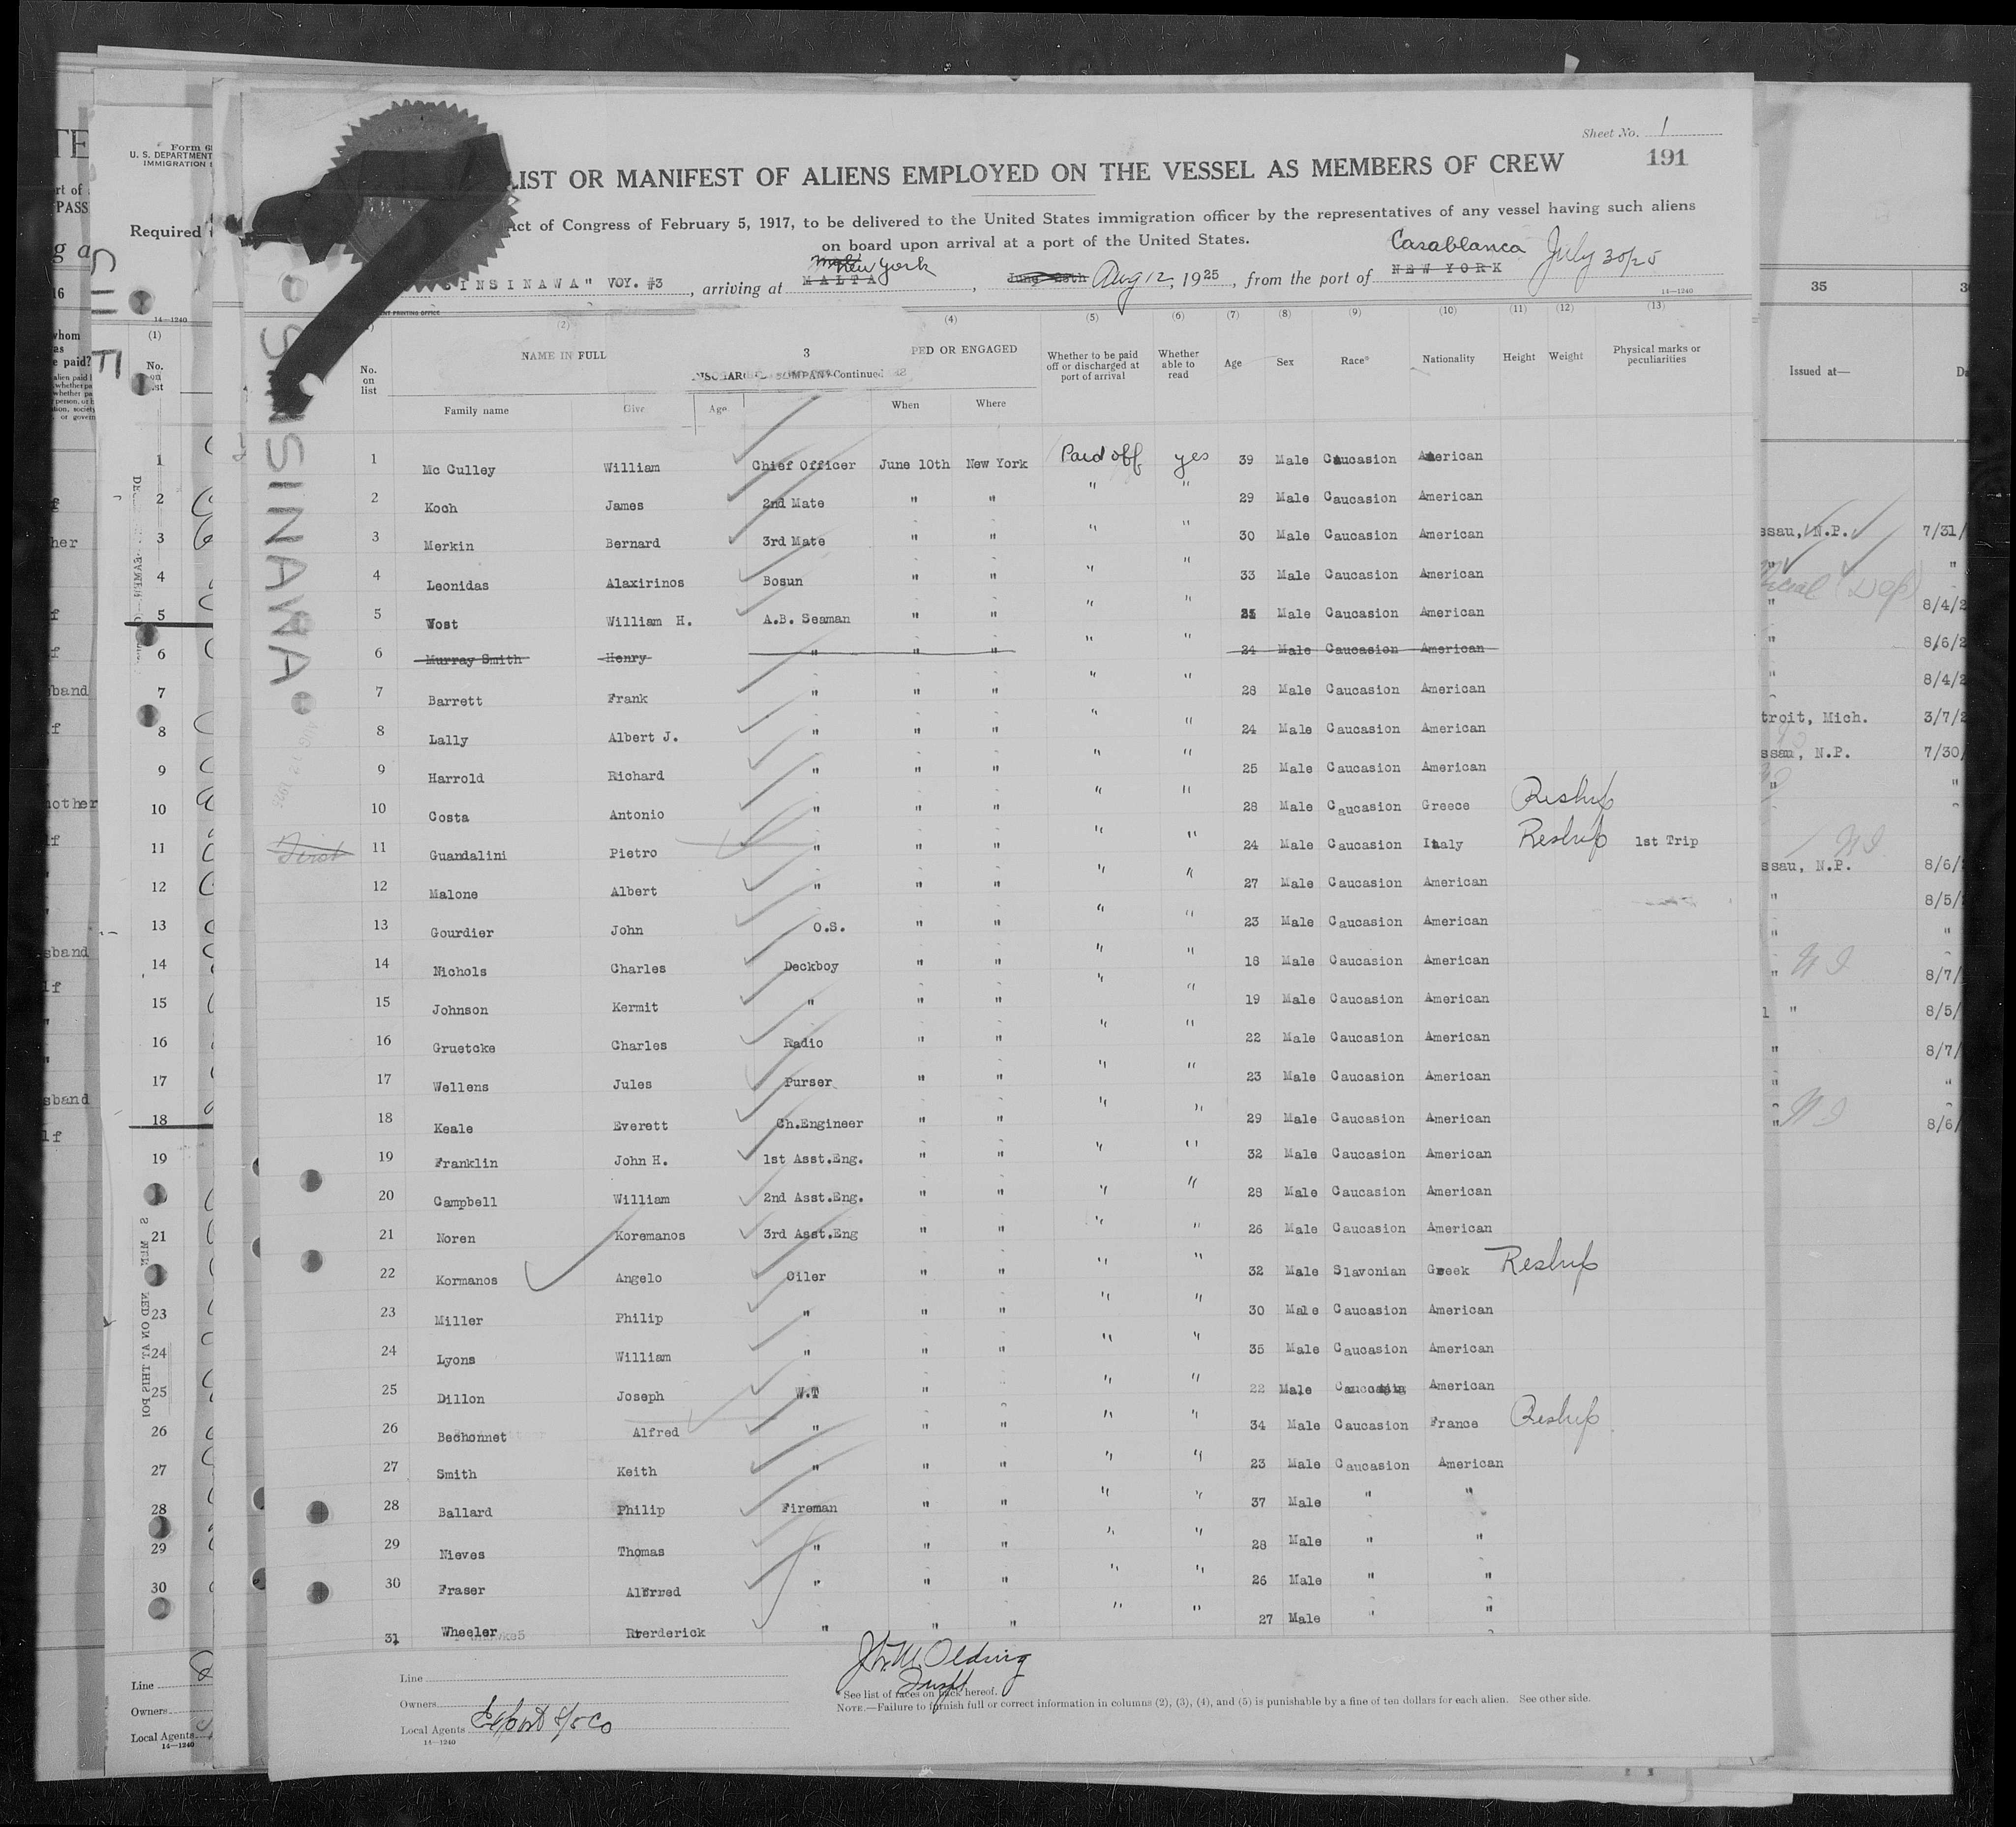 Sheet No. 1
191
LIST OR MANIFEST OF ALIENS EMPLOYED ON THE VESSEL AS MEMBERS OF CREW
Act of Congress of February 5, 1917, to be delivered to the United States immigration officer by the representatives of any vessel having such aliens
on board upon arrival at a port of the United States.
SINSINAWA" VOY. #3, arriving at MALTA New York, June Aug 12, 1925, from the port of NEW YORK Casablanca July 30/25
14—1240
(2) (4) (5) (6) (7) (8) (9) (10) (11) (12) (13)
No. on list NAME IN FULL 3 PED OR ENGAGED Whether to be paid off or discharged at port of arrival Whether able to read Age Sex Race* Nationality Height Weight Physical marks or peculiarities
Family name Give Age When Where
1 Mc Culley William Chief Officer June 10th New York Paid off yes 39 Male Caucasion American
2 Koch James 2nd Mate " " " " 29 Male Caucasion American
3 Merkin Bernard 3rd Mate " " " " 30 Male Caucasion American
4 Leonidas Alaxirinos Bosun " " " " 33 Male Caucasion American
5 Yost William H. A.B. Seaman " " " " Male Caucasion American
6 Murray Smith Henry " " " " " 24 Male Caucasion American
7 Barrett Frank " " " " " 28 Male Caucasion American
8 Lally Albert J. " " " " " 24 Male Caucasion American
9 Harrold Richard " " " " " 25 Male Caucasion American
10 Costa Antonio " " " " " 28 Male Caucasion Greece Reship
First 11 Guandalini Pietro " " " " " 24 Male Caucasion Italy Reship 1st Trip
12 Malone Albert " " " " " 27 Male Caucasion American
13 Gourdier John O.S. " " " " 23 Male Caucasion American
14 Nichols Charles Deckboy " " " " 18 Male Caucasion American
15 Johnson Kermit " " " " " 19 Male Caucasion American
16 Gruetcke Charles Radio " " " " 22 Male Caucasion American
17 Wellens Jules Purser " " " " 23 Male Caucasion American
18 Keale Everett Ch.Engineer " " " " 29 Male Caucasion American
19 Franklin John H. 1st Asst.Eng. " " " " 32 Male Caucasion American
20 Campbell William 2nd Asst.Eng. " " " " 28 Male Caucasion American
21 Noren Koremanos 3rd Asst.Eng " " " " 26 Male Caucasion American
22 Kormanos Angelo Oiler " " " " 32 Male Slavonian Greek Reship
23 Miller Philip " " " " " 30 Male Caucasion American
24 Lyons William " " " " " 35 Male Caucasion American
25 Dillon Joseph W.T " " " 22 Male American
26 Bechonnet Alfred " " " " " 34 Male Caucasion France Reship
27 Smith Keith " " " " " 23 Male Caucasion American
28 Ballard Philip Fireman " " " " 37 Male " "
29 Nieves Thomas " " " " " 28 Male " "
30 Fraser " " " " " 26 Male " "
31 Wheeler " " " " " 27 Male " "
Line
Owners
Local Agents Export S/S Co
14—1240
*See list of races on back hereof.
NOTE.—Failure to furnish full or correct information in columns (2), (3), (4), and (5) is punishable by a fine of ten dollars for each alien. See other side.
SINSINAWA
U. S. DEPARTMENT
IMMIGRATION
Required
Line
Owners
Local Agents
14—1240
35
Issued at—
N.P. 7/31/
8/6/
8/4/
Mich. 3/7/
N.P. 7/30/
N.P. 8/6/
8/5/
8/7/
8/5/
8/7/
8/6/